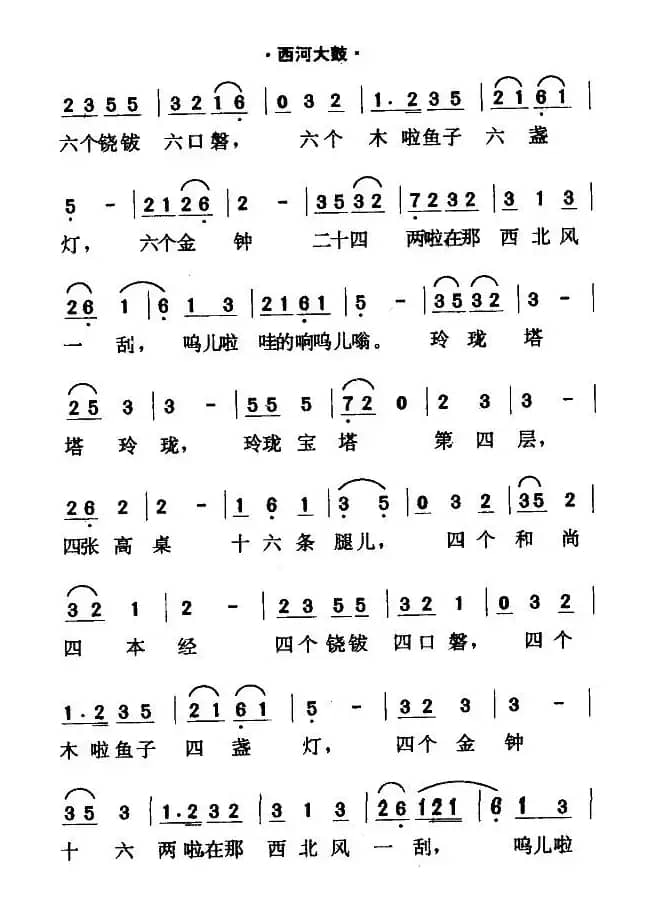 ·西河大鼓·
2 3 5 5 | 3 2 1 6 | 0 3 2 | 1 · 2 3 5 | 2 1 6 1 |
六个铙钹 六口磬， 六个 木啦鱼子 六盏
5 - | 2 1 2 6 | 2 - | 3 5 3 2 | 7 2 3 2 | 3 1 3
灯， 六个金 钟 二十四 两啦在那 西北风
2 6 1 | 6 1 3 | 2 1 6 1 | 5 - | 3 5 3 2 | 3 -
一 刮， 呜儿啦 哇的响呜儿嗡。 玲珑 塔
2 5 3 | 3 - | 5 5 5 | 7 2 0 | 2 3 | 3 - |
塔玲珑， 玲珑宝塔 第四层，
2 6 2 | 2 - | 1 6 1 | 3 5 | 0 3 2 | 3 5 2 |
四张高桌 十六条腿儿， 四个和尚
3 2 1 | 2 - | 2 3 5 5 | 3 2 1 | 0 3 2 |
四本经 四个铙钹 四口磬， 四个
1 · 2 3 5 | 2 1 6 1 | 5 - | 3 2 3 | 3 - |
木啦鱼子 四盏 灯， 四个金钟
3 5 3 | 1 · 2 3 2 | 3 1 3 | 2 6 1 2 1 | 6 1 3 |
十六 两啦在那 西北风 一刮， 呜儿啦